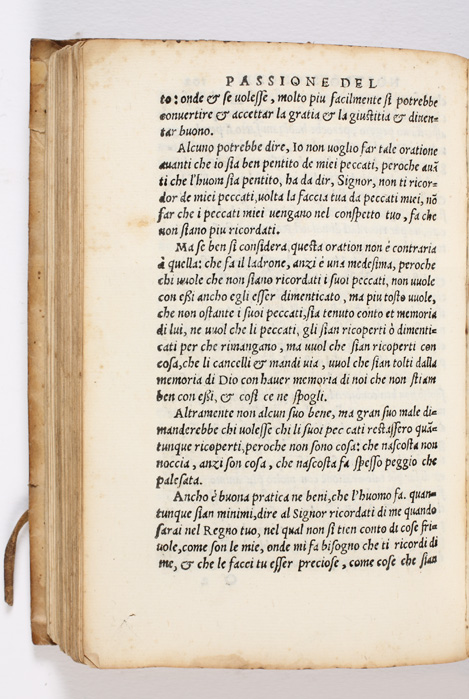 PASSIONE DEL
to: onde & se uolesse, molto piu facilmente si potrebbe
conuertire & accettar la gratia & la giustitia & diuen-
tar buono.
Alcuno potrebbe dire, Io non uoglio far tale oratione
auanti che io sia ben pentito de miei peccati, peroche auã
ti che l'huom sia pentito, ha da dir, Signor, non ti ricor-
dor de miei peccati, uolta la faccia tua da peccati muei, nõ
far che i peccati miei uengano nel conspetto tuo, fa che
non siano piu ricordati.
Ma se ben si considera, questa oration non è contraria
à quella: che fa il ladrone, anzi è una medesima, peroche
chi uuole che non siano ricordati i suoi peccati, non uuole
con essi ancho egli esser dimenticato, ma piu tosto uuole,
che non ostante i suoi peccati, sia tenuto conto et memoria
di lui, ne uuol che li peccati, gli sian ricoperti ò dimenti-
cati per che rimangano, ma uuol che sian ricoperti con
cosa, che li cancelli & mandi uia, uuol che sian tolti dalla
memoria di Dio con hauer memoria di noi che non stiam
ben con essi, & cosi ce ne spogli.
Altramente non alcun suo bene, ma gran suo male di-
manderebbe chi uolesse chi li suoi pec cati restassero quã-
tunque ricoperti, peroche non sono cosa: che nascosta non
noccia, anzi son cosa, che nascosta fa spesso peggio che
palesata.
Ancho è buona pratica ne beni, che l'huomo fa. quan-
tunque sian minimi, dire al Signor ricordati di me quando
sarai nel Regno tuo, nel qual non si tien conto di cose fri-
uole, come son le mie, onde mi fa bisogno che ti ricordi di
me, & che le facci tu esser preciose, come cose che sian